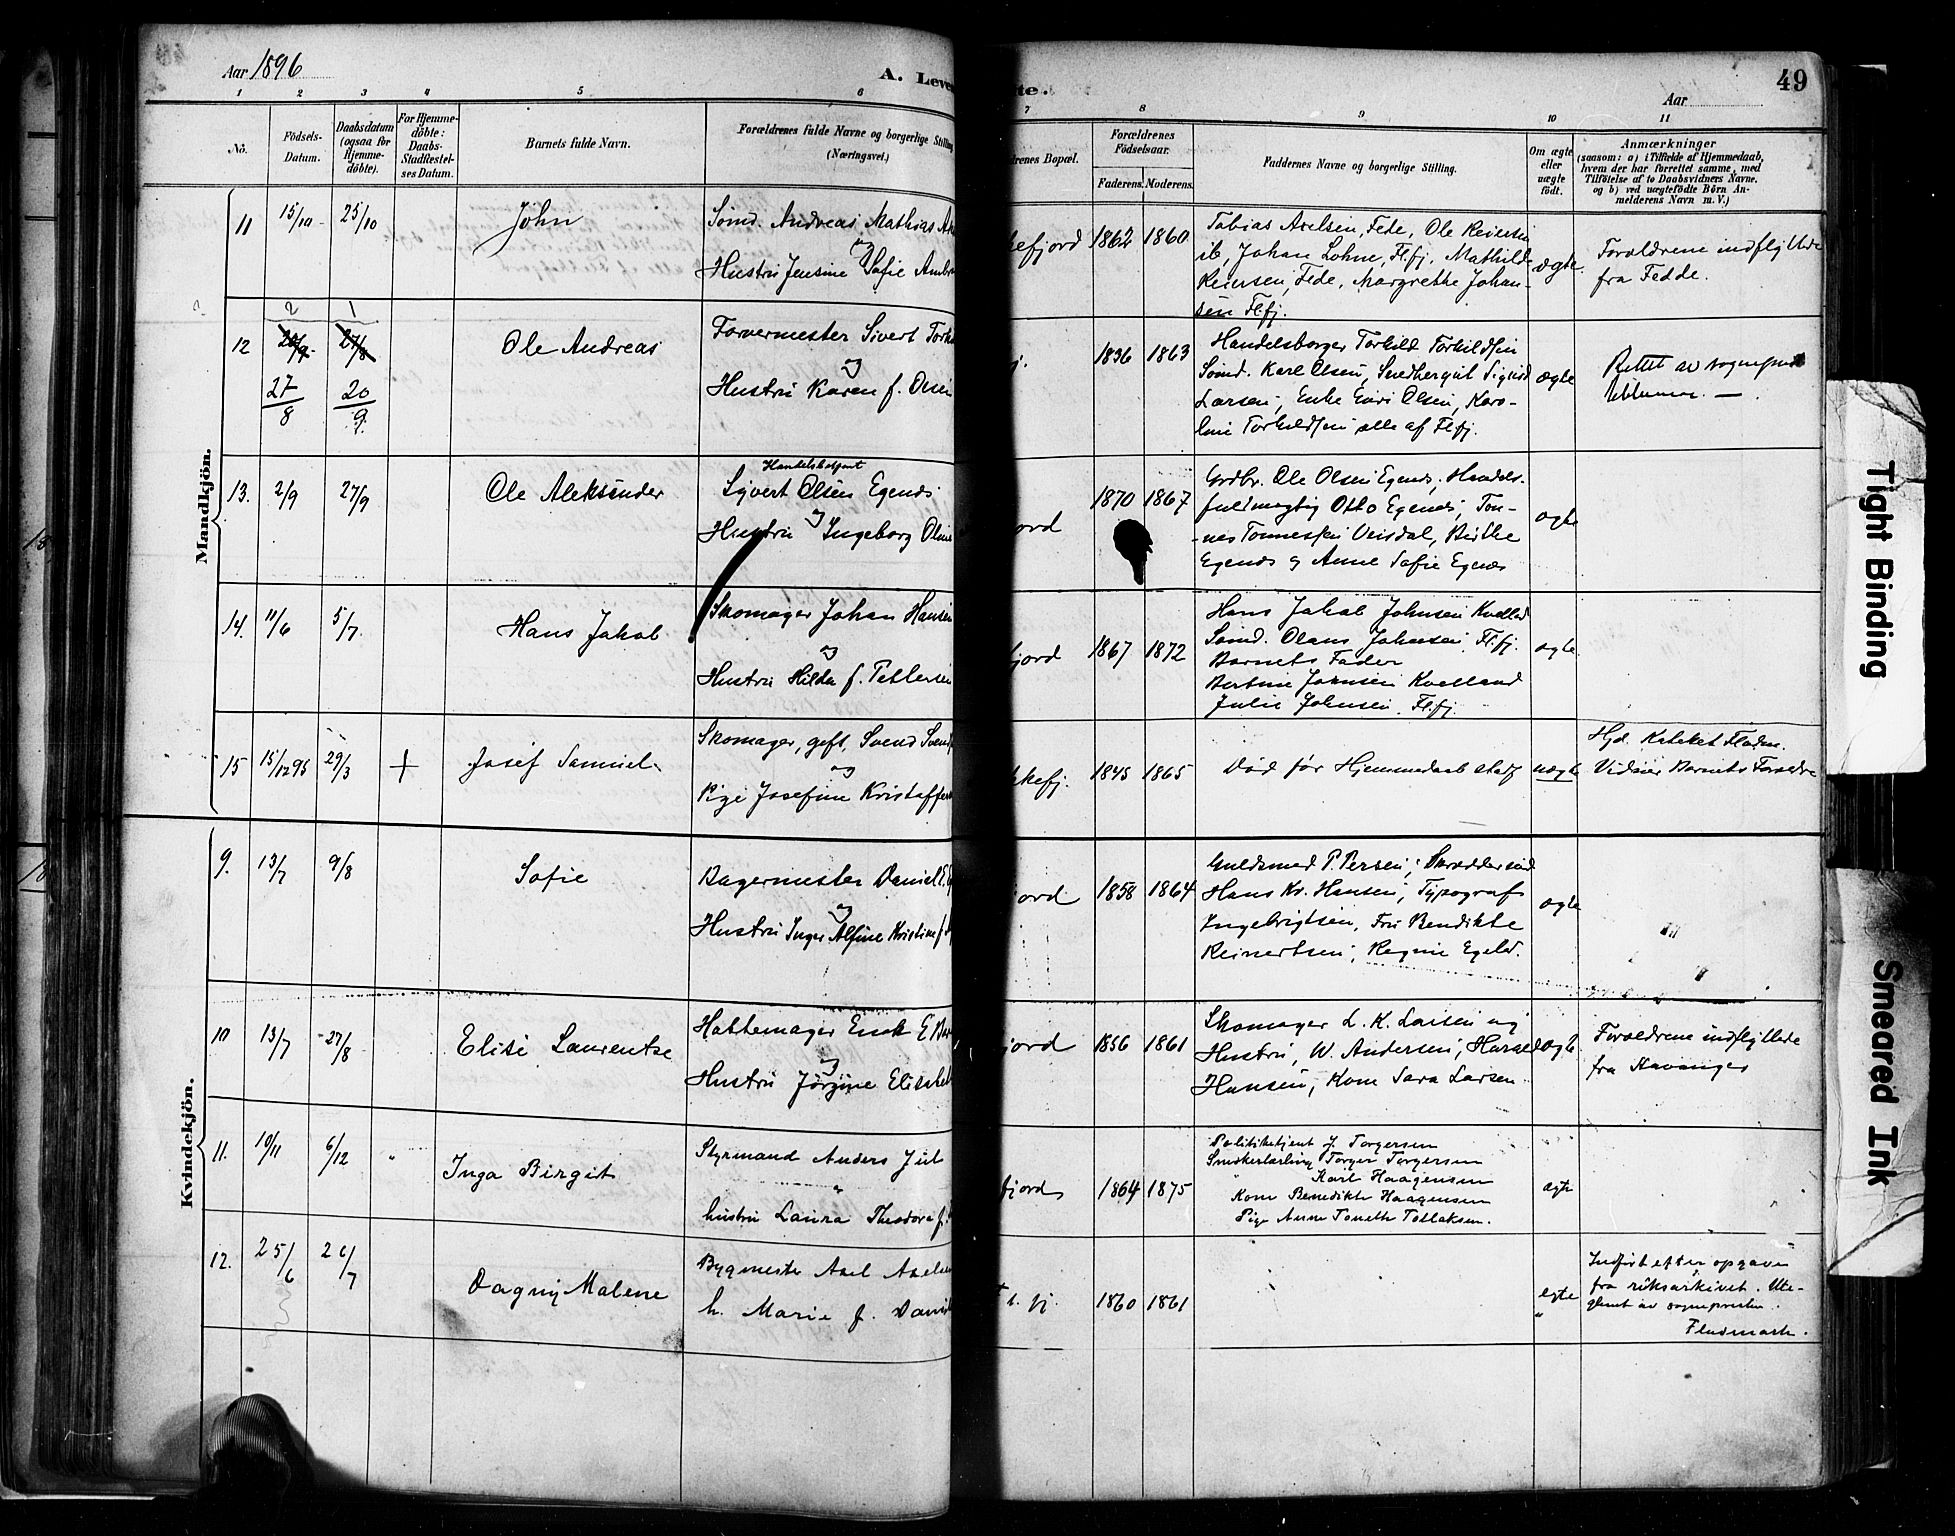 Aar 1896
A. Leve
te.
49
Aar
1 2 3 4 5 6 7 8 9 10 11
No.
Födsels-
Datum.
Daabsdatum
(ogsaa for
Hjemme-
döbte).
For Hjemme-
döbte:
Daabs-
Stadfæstel-
ses Datum.
Barnets fulde Navn.
Forældrenes fulde Navne og borgerlige Stilling
(Næringsvei.)
drenes Bopæl.
Forældrenes
Födselsaar.
Faderens. Moderens.
Faddernes Navne og borgerlige Stilling.
Om ægte
eller
uægte
födt.
Anmærkninger
(saasom: a) i Tilfælde af Hjemmedaab,
hvem der har forrettet samme, med
Tilföielse af to Daabsvidners Navne,
og b) ved uægtefödte Börn An-
melderens Navn m. V.)
Mandkjön.
11 15/10 25/10 John
Sømd. Andreas Mathias
og
Hustru Jensine Sofie
efjord 1862 1860
Tobias Axelsen, Fede, Ole Reiersen
ib, Johan Lohne, Flfj, Mathilde
Reiersen, Fede, Margrethe Johan-
sen Flfj.
ægte
Forældrene indflyttede
fra Fedde.
12 2 1
20/9 27/8
27/8 20/9
Ole Andreas
Farvermester Sivert Tork
og
Hustru Karen f. Olsen
j. 1836 1863
Handelsborger Torkild Torkildsen
Sømd. Karl Olsen, Sigurd
Larsen, Enke Olsen, Karo-
line Torkildsen alle af Flfj.
ægte
Rettet av sogneprest
13. 2/9 27/9 Ole Aleksander
Handelsbetjent
Sivert Olsen Egenes
og
Hustru Ingeborg
ord 1870 1867
Grdbr. Ole Olsen Egenes, Handels-
fuldmægtig Otto Egenes, Ton-
nes Tonnessen Veisdal, Birthe
Egenes og Anne Sofie Egenes
ægte
14. 11/6 5/7 Hans Jakob
Skomager Johan Hansen
og
Hustru Hilda f. Pettersen
fjord 1867 1872
Hans Jakob Johnsen Kvelland
Sømd. Olaus Johnsen, Flfj.
Barnets Fader
Bertine Johnsen Kvelland
Julie Johnsen Flfj.
ægte
15 15/12 95 29/3 + Josef Samuel
Skomager, gift, Svend
og
Pige Josefine Kristoffer
kkefj. 1845 1865
Død før Hjemmedaab stadf
uægte
Hjd. Kateket
Vidner Barnets Forældre
Kvindekjön.
9. 13/7 9/8 Sofie
Bagermester Daniel E.
og
Hustru Inger Alfine Kristine f.
jord 1858 1864
Guldsmed P. Persen, Skrædder
Hans Kr. Hansen, Typograf
Ingebrigtsen, Fru Bendikte
Reinertsen, Regine Egeld.
ægte
10 13/7 27/8 Elise Laurentze
Hattemager E
og
Hustru Jørgine Elisabet
jord 1856 1861
Skomager L. K. Larsen og
Hustru, W. Andersen, Harald
Hansen, Kone Sara Larsen
ægte
Forældrene indflyttede
fra Stavanger
11. 10/11 6/12 " Inga Birgit
Styrmand Anders Juel
og
hustru Laura Theodora f.
fjord 1864 1875
Politibetjent J. Torgersen
Snedkerlærling Torger Torgersen
" Karl Haagensen
Kone Benedikte Haagensen
Pige Anne Tonette Tollaksen.
ægte
12. 25/6 26/7 Dagny Malene
Bygmester Axel Axelsen
h. Marie f. Daniel
Fl. fj. 1860 1861
egte
"
Indført efter opgave
fra riksarkivet. Ute-
glemt av sognepresten.
Flodmark.
Tight Binding
Smeared Ink